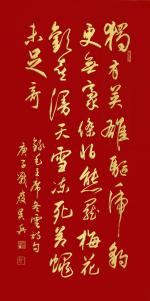 獨有英雄驅虎豹
更無豪傑怕熊羆梅花
歡喜漫天雪凍死蒼蠅
未足奇
錄毛主席冬雲詩句
庚子